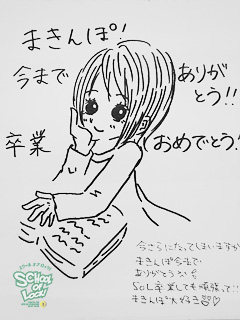 まきんぽ!
今まで ありが
とう!!
卒業 おめでとう!
今さらになってしまいますが
まきんぽ今まで
ありがとう
SOL卒業しても頑張って!!
まきんぽ大好き♡
SCHOOL
OF
LOCK!